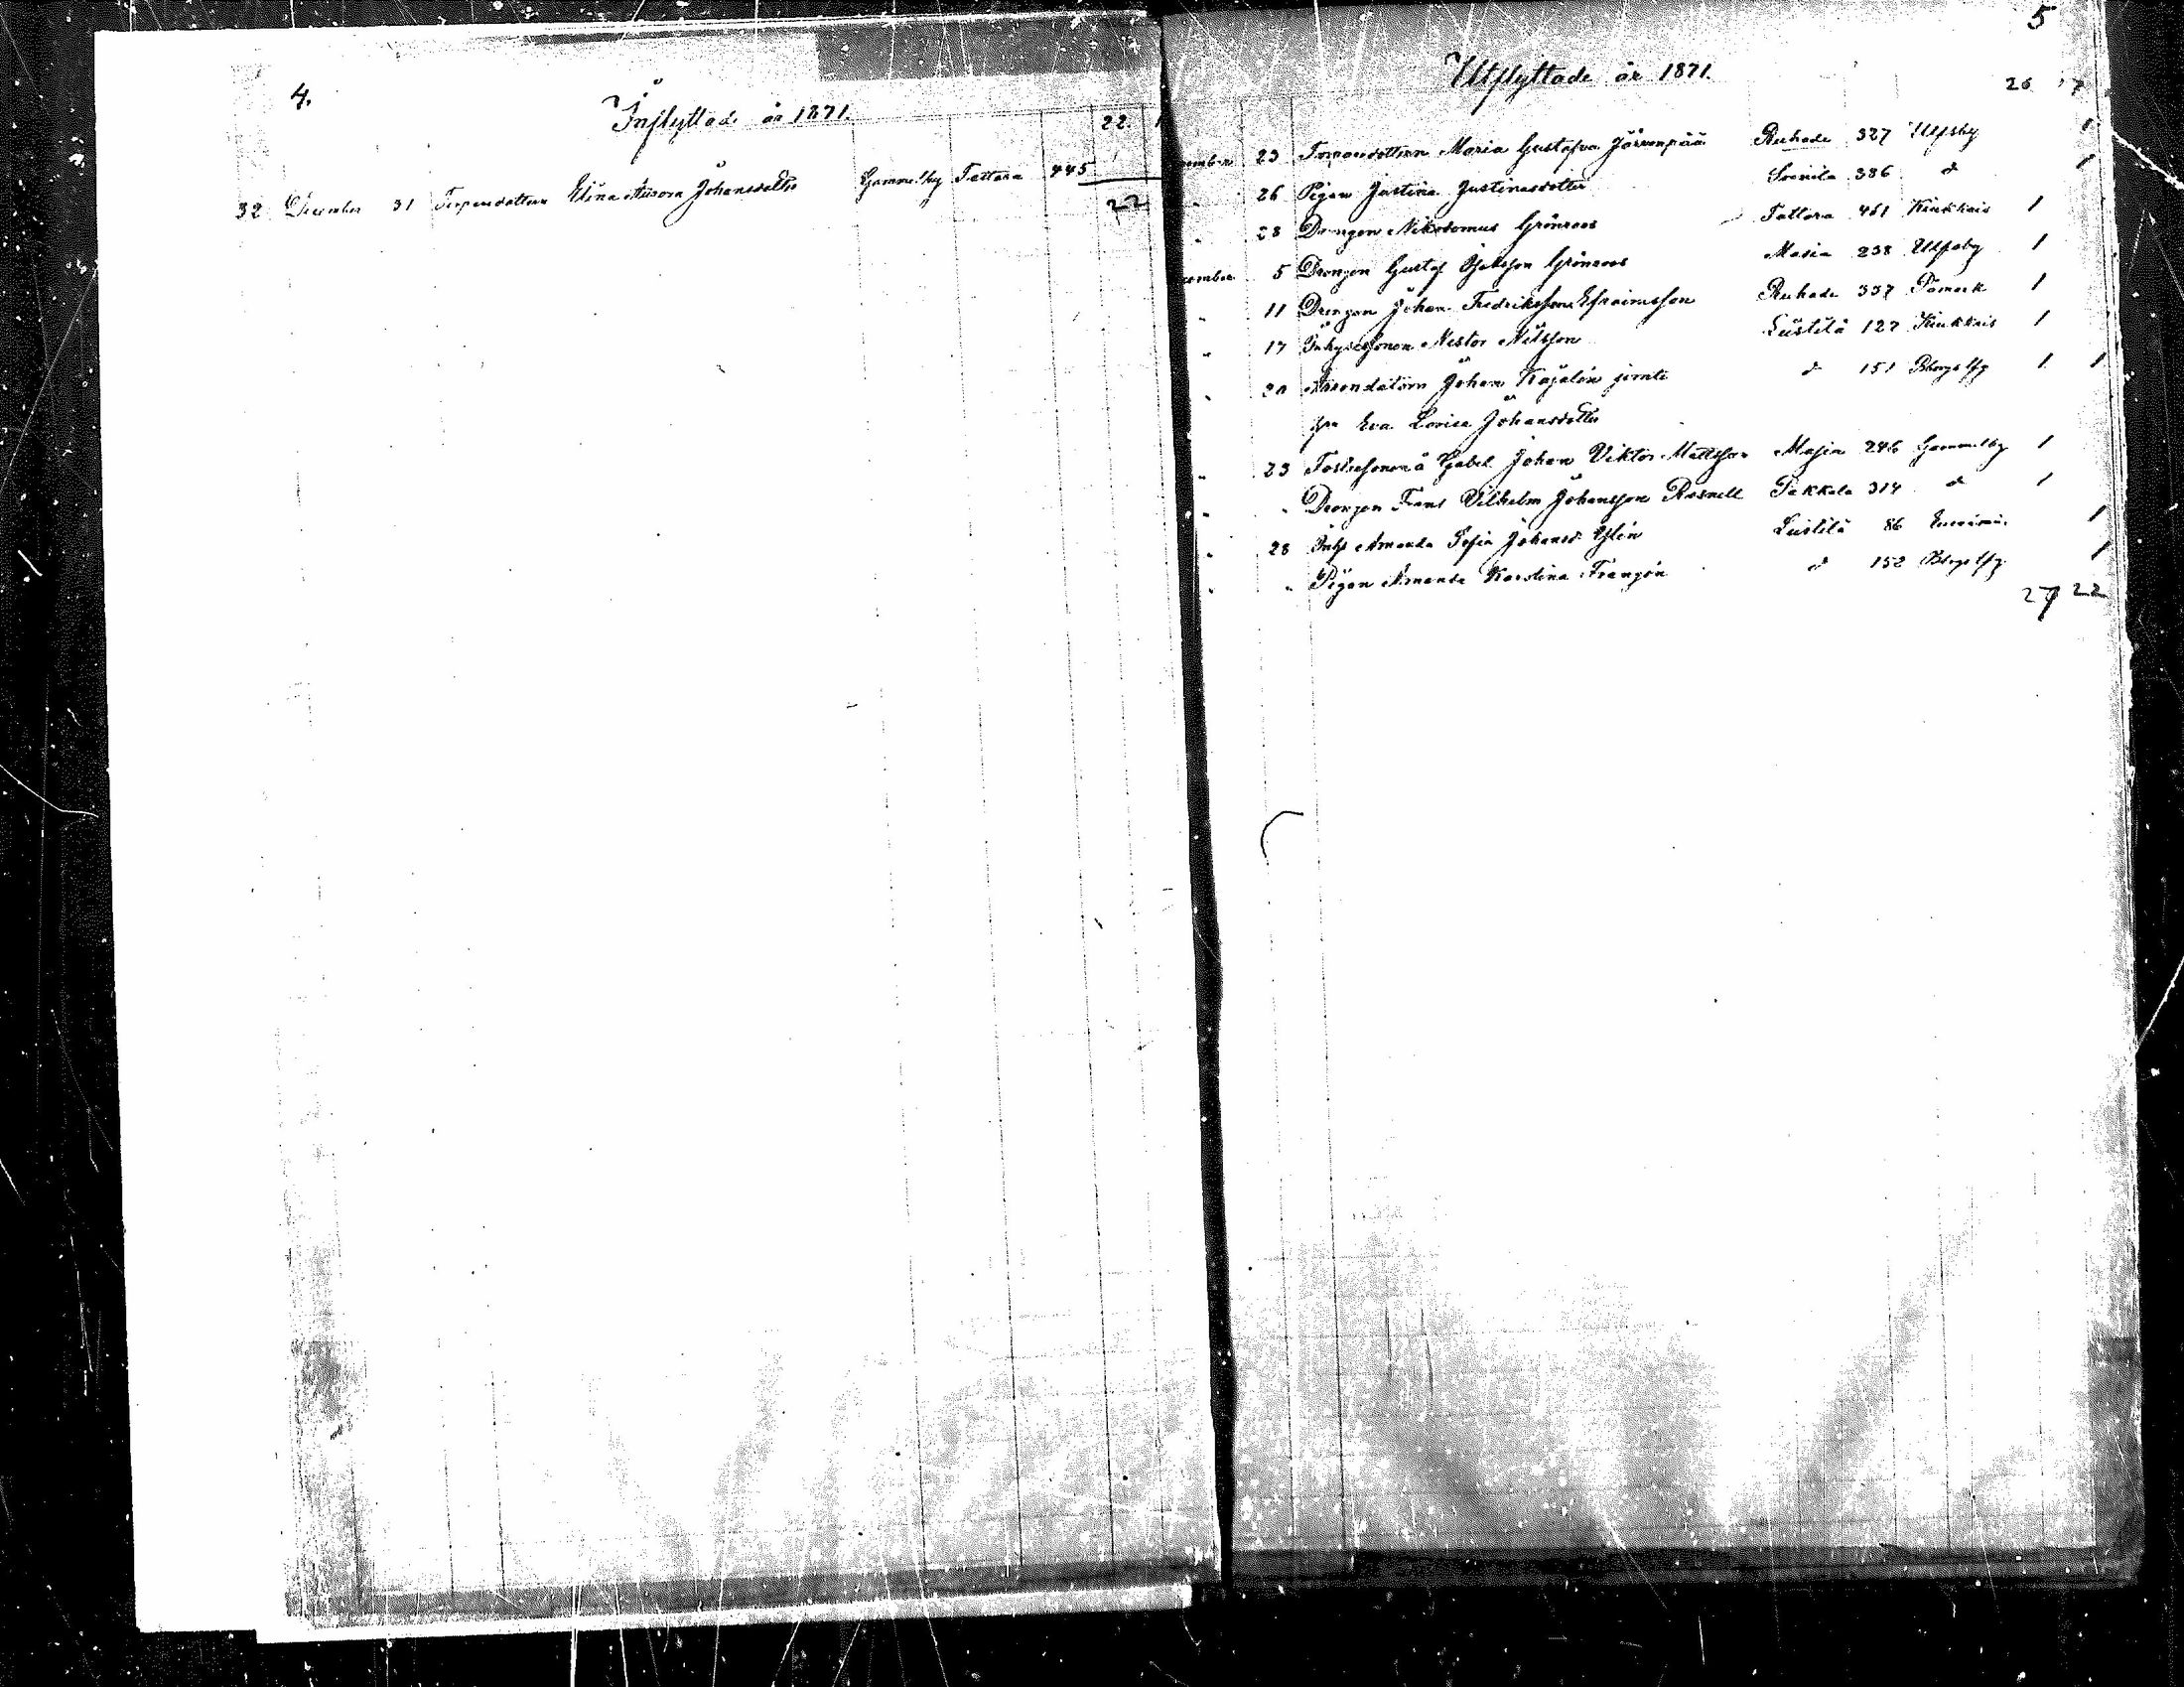 4.
Inflyttade år 1871.
22.
32 December 31 Torparedottren Elina Aurora Johansdotter Gammelby Tattara 445
22
5
Utflyttade år 1871.
26 17
23 Maria Gustafva Järvenpää Ruhade 327 Ulfsby 1
" 26 Pigan Justina Justinasdotter Sonnila 386 d 1
" 28 Drengen Nikodemus Grönroos Tattara 461 Kiukkais 1
cember 5 Drengen Gustaf Grönroos Masia 238 Ulfsby 1
" 11 Drengen Johan Fredriksson Efraimsson Ruhade 337 Påmark 1
" 17 Inhysessonen Nestor Nilsson Leistilä 127 Kiukkais 1
" 20 Arrendatorn Johan Kajalén jemte d 151 1 1
Eva Lovisa Johansdotter
" 23 Johan Viktor Mattsson Masia 246 Gammelby 1
" " Drengen Frans Vilhelm Johansson Rosnell Pakkala 314 d 1
" 28 Inhs Amanda Sofia Johansd. Leistilä 86 1
" " Pigan Amanda Karolina d 152 1
27 22